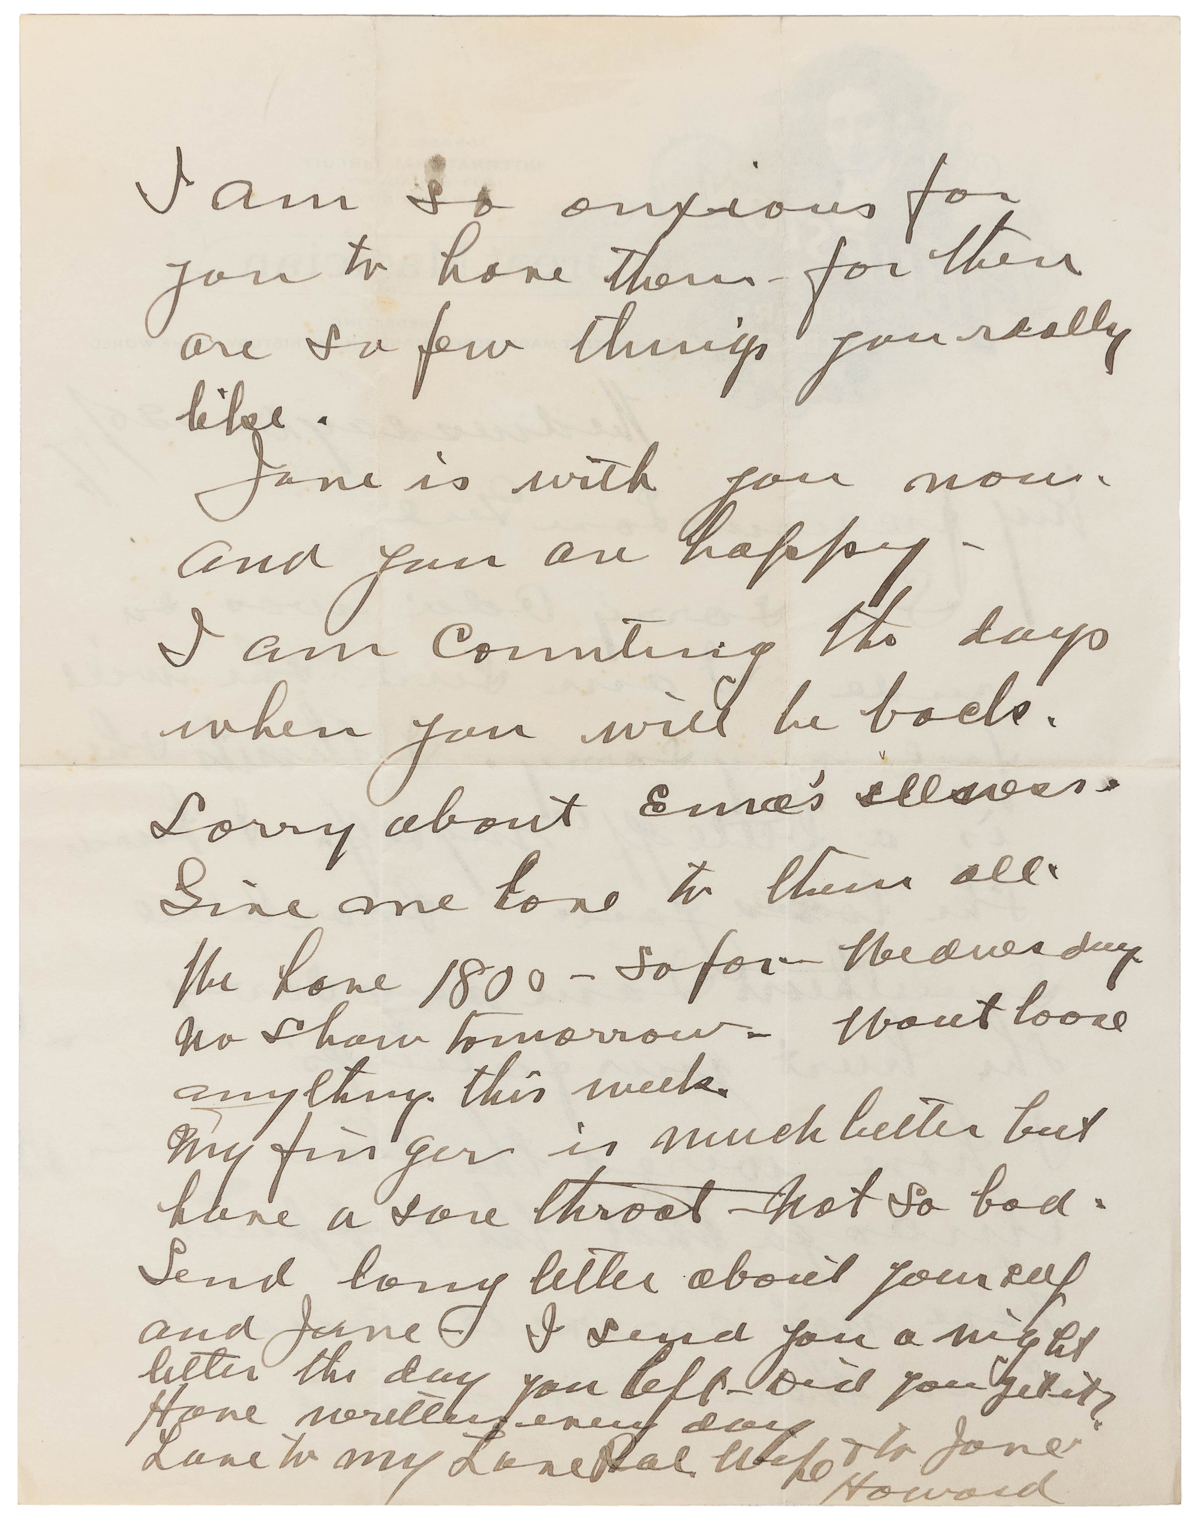 I am so anxious for
you to have them - for there
are so few things you really
like.
Jane is with you now.
and you are happy -
I am counting the days
when you will be back.
Sorry about illness.
Give me love to them all.
We have 1800 - so far - Wednesday
No show tomorrow - Wont loose
anything this week.
My finger is much better but
have a sore throat - Not so bad.
Send long letter about yourself
and Jane - I send you a night
letter the day you left - Did you get it?
Have written every day
Love to my Wife & to Jane
Howard